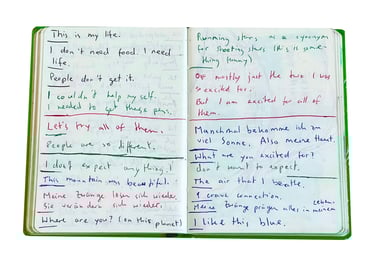 This is my life.
I don't need food. I need
life.
People don't get it.
I couldn't help my self.
I needed to get these pens.
Let's try all of them.
People are so different.
I don't expect anything!
This mountain was beautiful.
Meine Zwänge lösen sich wieder.
Sie verändern sich wieder.
Where are you? (on this planet)
Running stars as a synonym
for shooting stars (this is some-
thing funny)
Or mostly just the two I was
excited for.
But I am excited for all of
them.
Manchmal bekomme ich zu
viel Sonne. Also meine Haut.
What are you excited for?
don't want to expect.
The air that I breathe.
I crave connection.
Meine Zwänge prägen alles in meinem
Leben.
I like this blue.